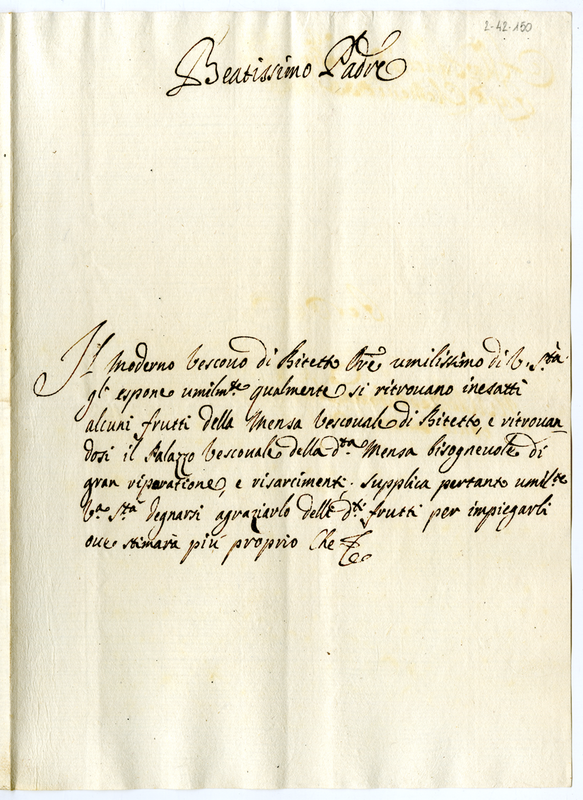 2-42-150
Beatissimo Padre
Il moderno Vescovo di Bitetto Ore umilissimo di V. Stà
gli espone umilmte qualmente si ritrovano inesatti
alcuni frutti della Mensa Vescovale di Bitetto, e ritrovan
dosi il Palazzo Vescovale della dta Mensa bisognevole di
gran riparatione, e risarcimenti. Supplica pertanto umilte
Va Sta degnarsi agraziarlo delli dti frutti per impiegarli
ove stimarà più proprio Che